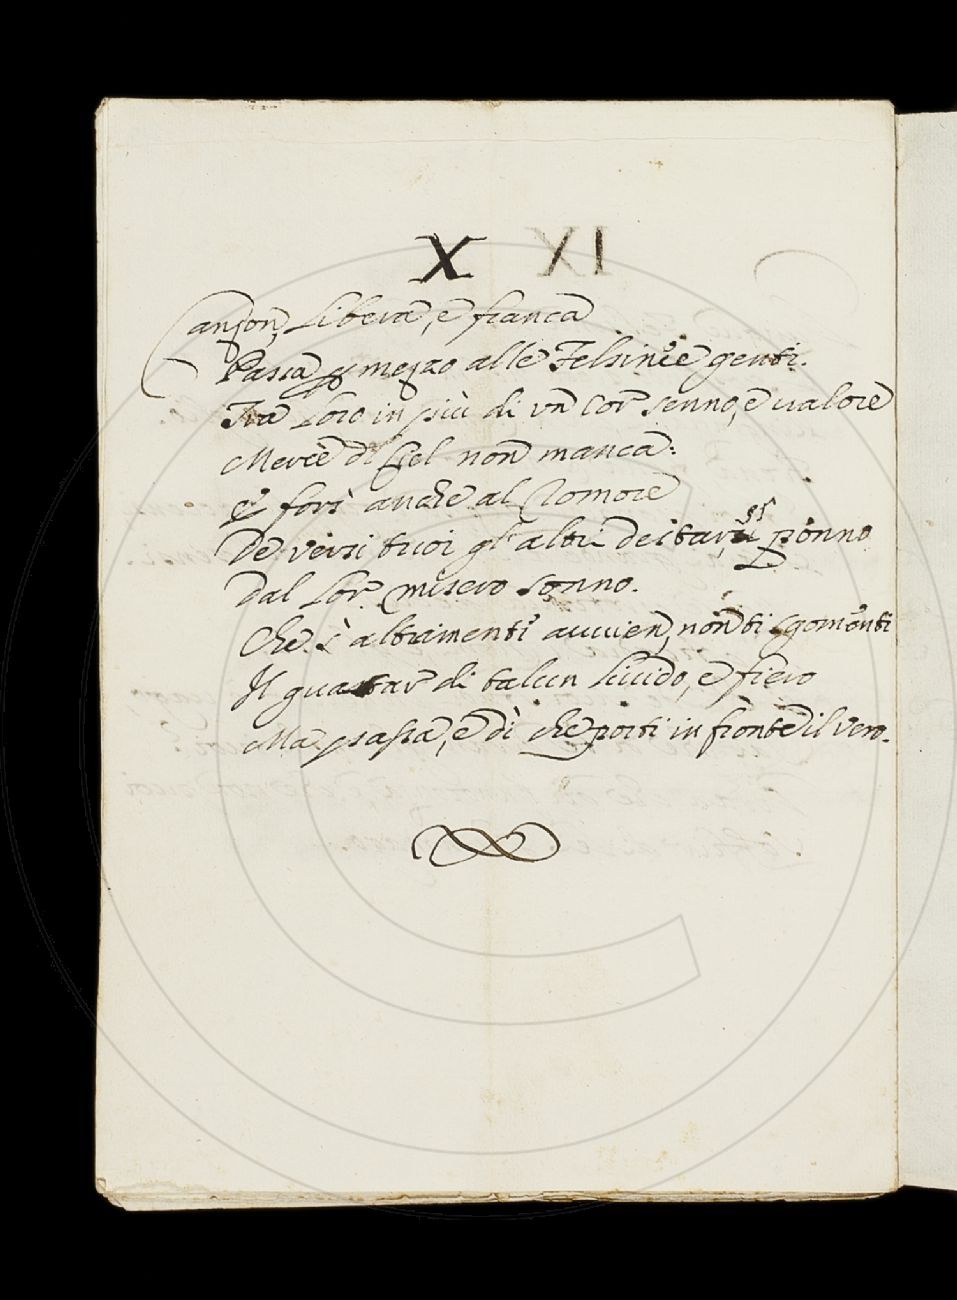 X
Canzon, Libera, e franca
Passa p mezzo alle Felsinee genti.
Tra Loro in più di vn Cor senno, e valore
Mercè di Ciel non manca:
E forsi anche al Romore
De versi tuoi gl' altri destarsi ponno
Dal Lor misero sonno.
Che s' altrimenti auuien, non ti sgomenti
Il guatar di talun liuido, e fiero
Ma passa, e dì che porti in fronte il vero.